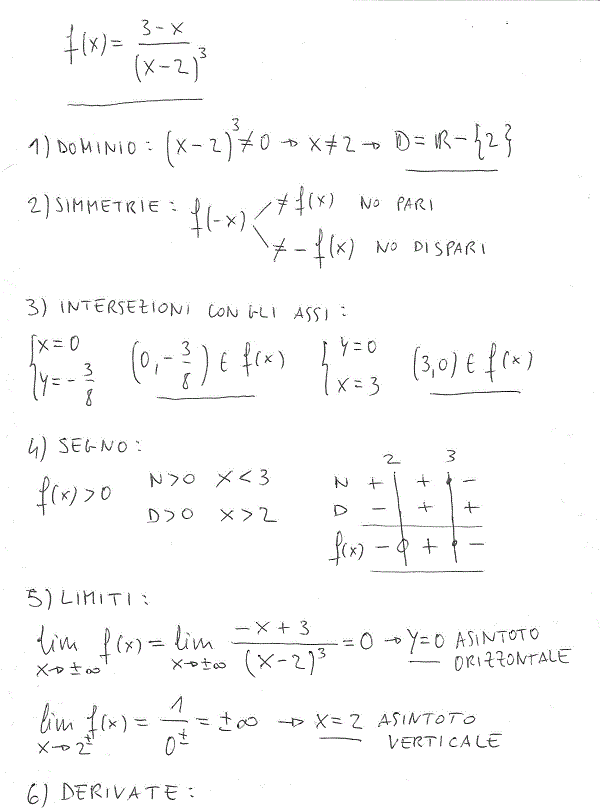 f(x) = (3-x)/(x-2)³
1) DOMINIO: (x-2)³ ≠ 0 → x ≠ 2 → D = ℝ - {2}
2) SIMMETRIE: f(-x) ≠ f(x) NO PARI
≠ -f(x) NO DISPARI
3) INTERSEZIONI CON GLI ASSI:
{x=0 (0, -3/8) ∈ f(x) {y=0 (3,0) ∈ f(x)
y=-3/8 x=3
4) SEGNO:
f(x)>0 N>0 x<3
D>0 x>2
2 3
N + + -
D - + +
f(x) - + -
5) LIMITI:
lim x→±∞ f(x) = lim x→±∞ (-x+3)/(x-2)³ = 0 → y=0 ASINTOTO
ORIZZONTALE
lim x→2± f(x) = 1/0± = ±∞ → x=2 ASINTOTO
VERTICALE
6) DERIVATE: